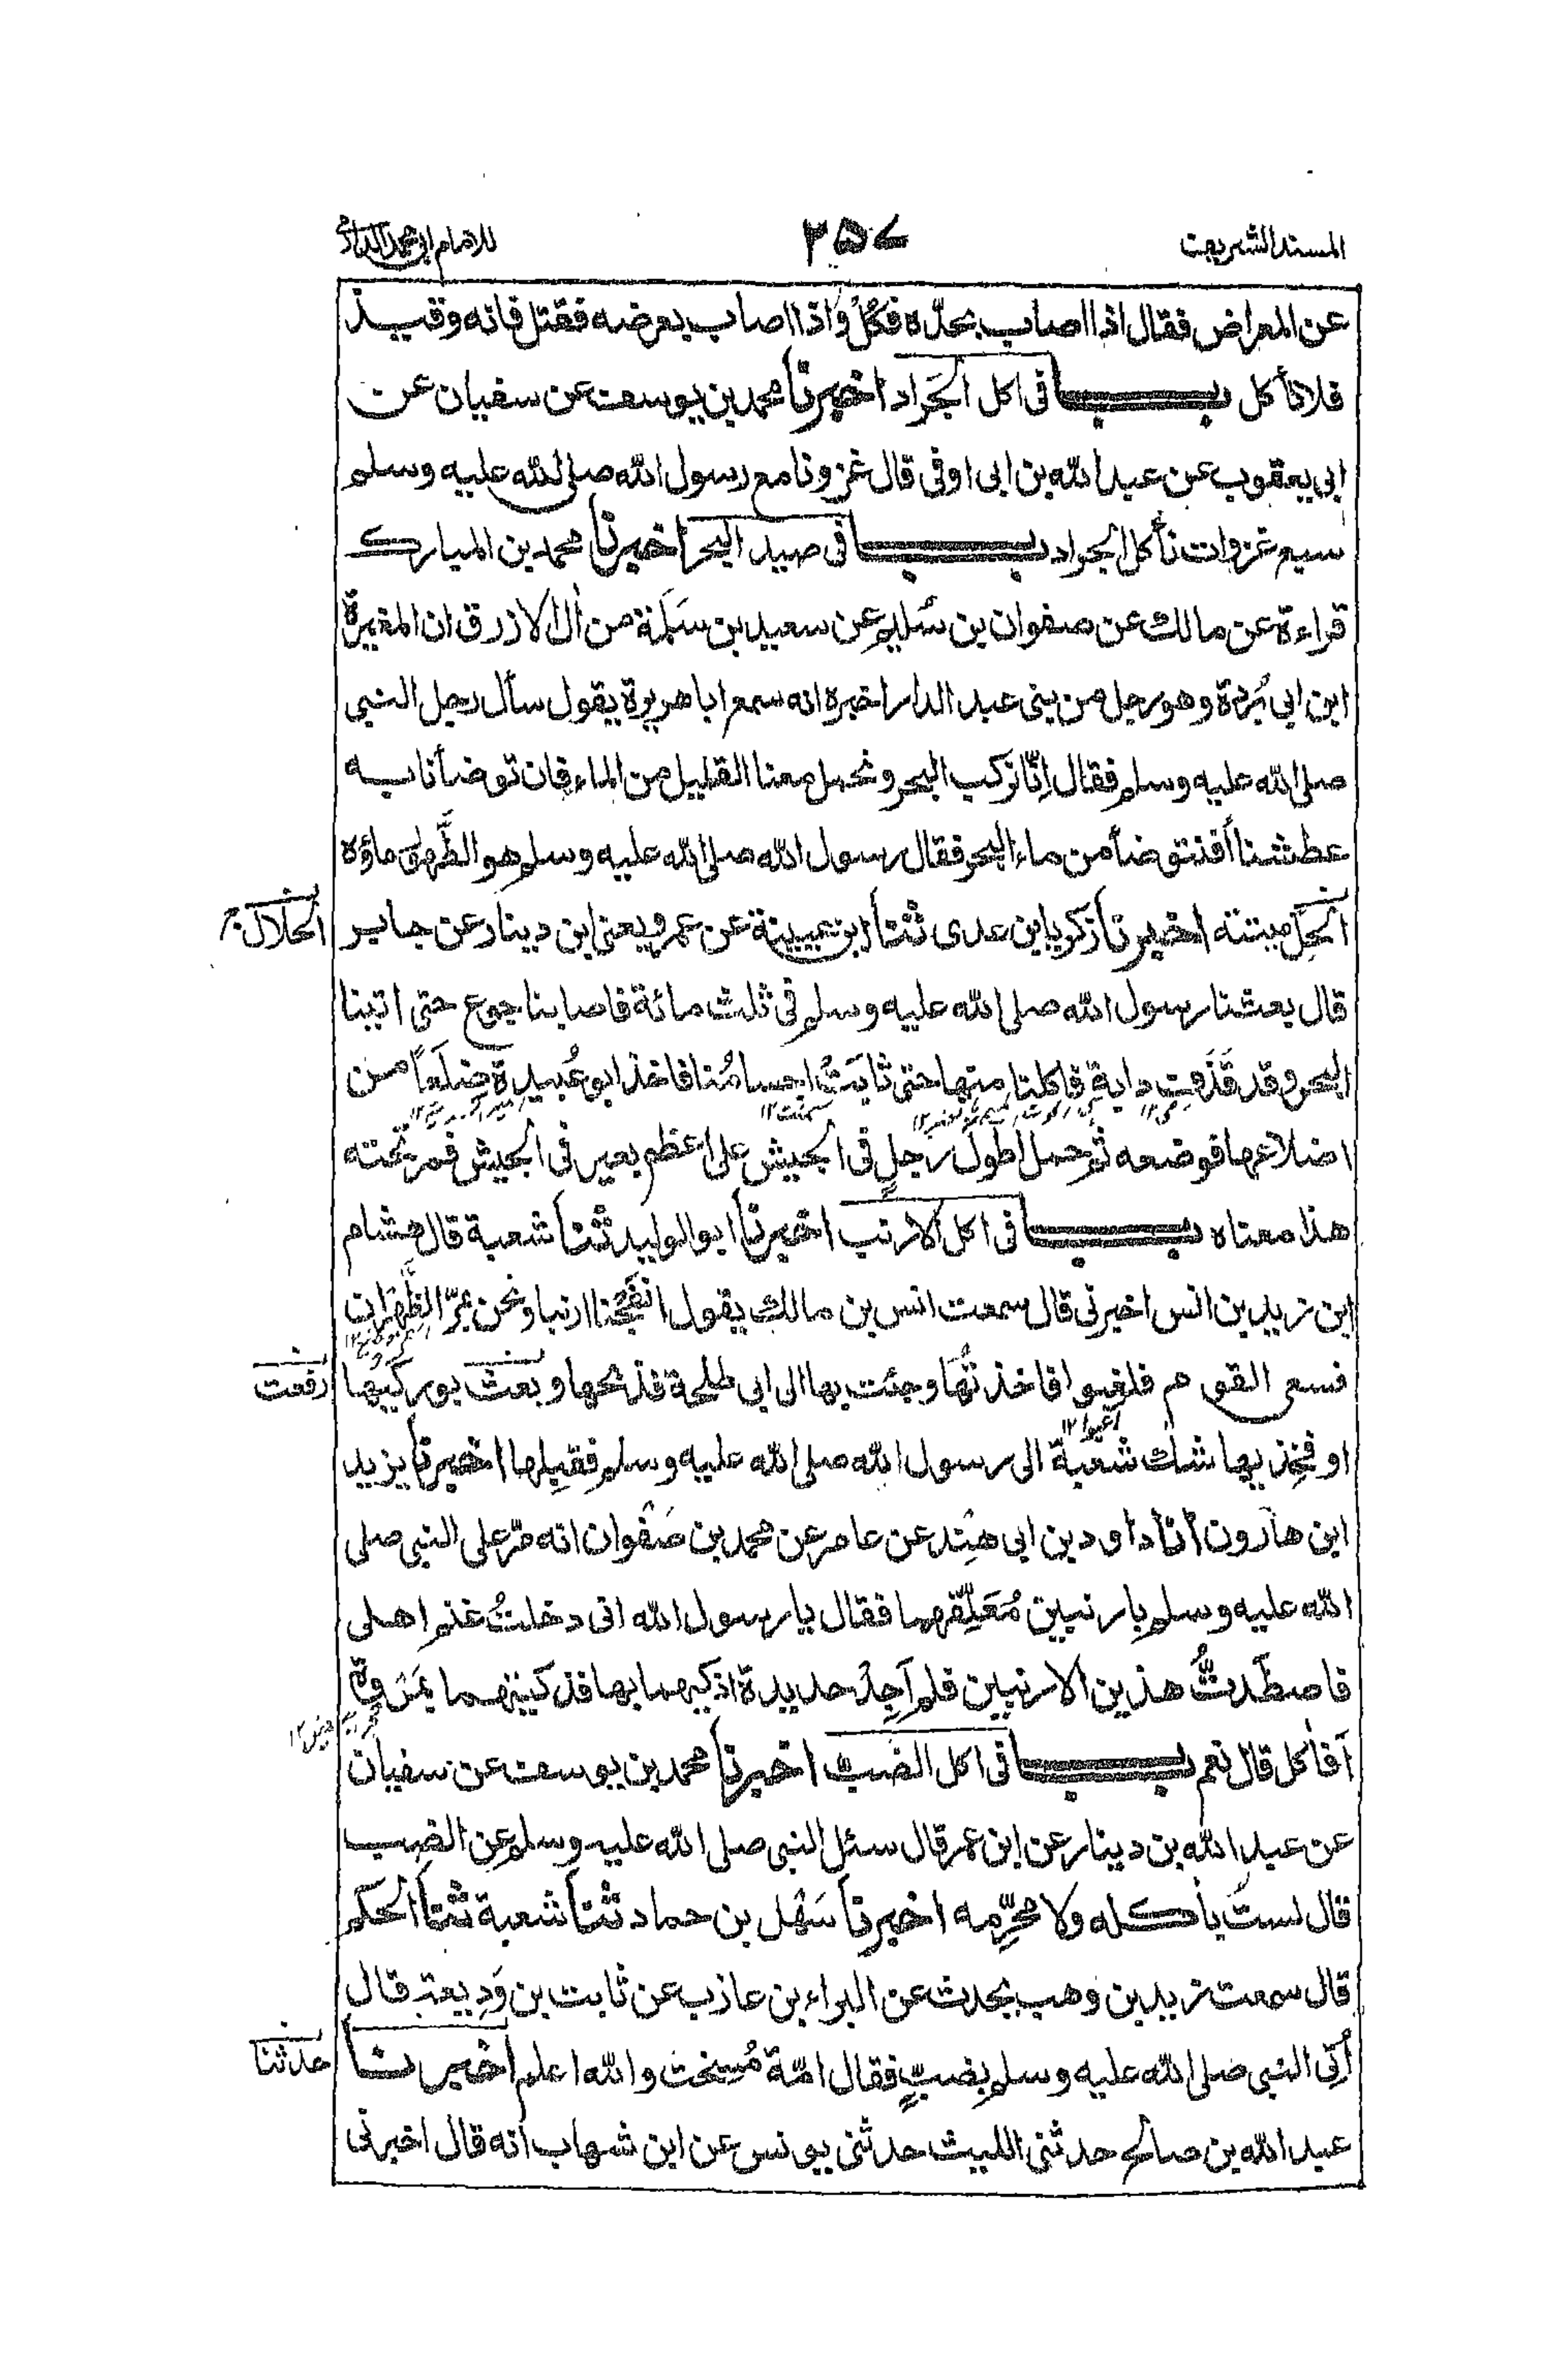 المسند الشريف
۲۵۷
للامام ابي محمد الدارمي
عن المعراض فقال اذا اصاب بحدّه فكُلْ وَاذا اصاب بعرضه فقتل فانه وقيذ
فلا تأكل باب فى اكل الجَراد اخبرنا محمد بن يوسف عن سفيان عن
ابى يعقوب عن عبد الله بن ابى اوفى قال غزونا مع رسول الله صلى الله عليه وسلم
سبع غزوات نأكل الجراد باب فى صيد البحر اخبرنا محمد بن المبارك
قراءة عن مالك عن صفوان بن سُليم عن سعيد بن سَلَمة من اٰل الازرق ان المغيرة
ابن ابي بُردة وهو رجل من بنى عبد الدار اخبره انه سمع ابا هريرة يقول سأل رجل النبى
صلى الله عليه وسلم فقال اِنّا نركب البحر ونحمل معنا القليل من الماء فان توضأنا به
عطشنا أفنتوضأ من ماء البحر فقال رسول الله صلى الله عليه وسلم هو الطَّهور ماؤه
الحِلّ ميتته اخبرنا زكريا بن عدى ثنا ابن عيينة عن عمرو يعنى ابن دينار عن جابر
الحلال
قال بعثنا رسول الله صلى الله عليه وسلم فى ثلث مائة فاصابنا جوع حتى اتينا
البحر وقد قَذَفت دابة فاكلنا منها حتى ثابَتْ اجسامُنا فاخذ ابو عُبيدة ضِلَعاً من
اضلاعها فوضعه ثم حمل اطول رجلٍ فى الجيش على اعظم بعير فى الجيش فمر تحته
هذا معناه باب فى اكل الارنب اخبرنا ابو الوليد ثنا شعبة قال هشام
ابن زيد بن انس اخبرنى قال سمعت انس بن مالك يقول انفَجْنا ارنبا ونحن بمرّ الظَّهْران
فسعى القوم فلغبوا فاخذتُها وجئت بها الى ابى طلحة فذبحها وبعث بوركيها
رفعت
اعيوا ۱۲
او فخِذيها شك شعبة الى رسول الله صلى الله عليه وسلم فقبِلها اخبرنا يزيد
ابن هارون انا داود بن ابى هِند عن عامر عن محمد بن صَفوان انه مرّ على النبى صلى
الله عليه وسلم بارنبين مُعَلِّقهما فقال يا رسول الله انى دخلتُ غنم اهلى
فاصطَدتُّ هذين الارنبين فلم اَجِدْ حديدة اذكيهما بها فذكيتهما بمَروة
اَفاٰكل قال نعم باب فى اكل الضب اخبرنا محمد بن يوسف عن سفيان
عن عبد الله بن دينار عن ابن عمر قال سئل النبى صلى الله عليه وسلم عن الضب
قال لست باٰكله ولا محرِّمه اخبرنا سَهْل بن حماد ثنا شعبة ثنا الحكم
قال سمعت زيد بن وهب يحدث عن البراء بن عازب عن ثابت بن وَدِيعة قال
اُتِى النبى صلى الله عليه وسلم بضبٍّ فقال امّة مُسِخت والله اعلم اخبرنا
حدثنا
عبد الله بن صالح حدثنى الليث حدثنى يونس عن ابن شهاب انه قال اخبرنى